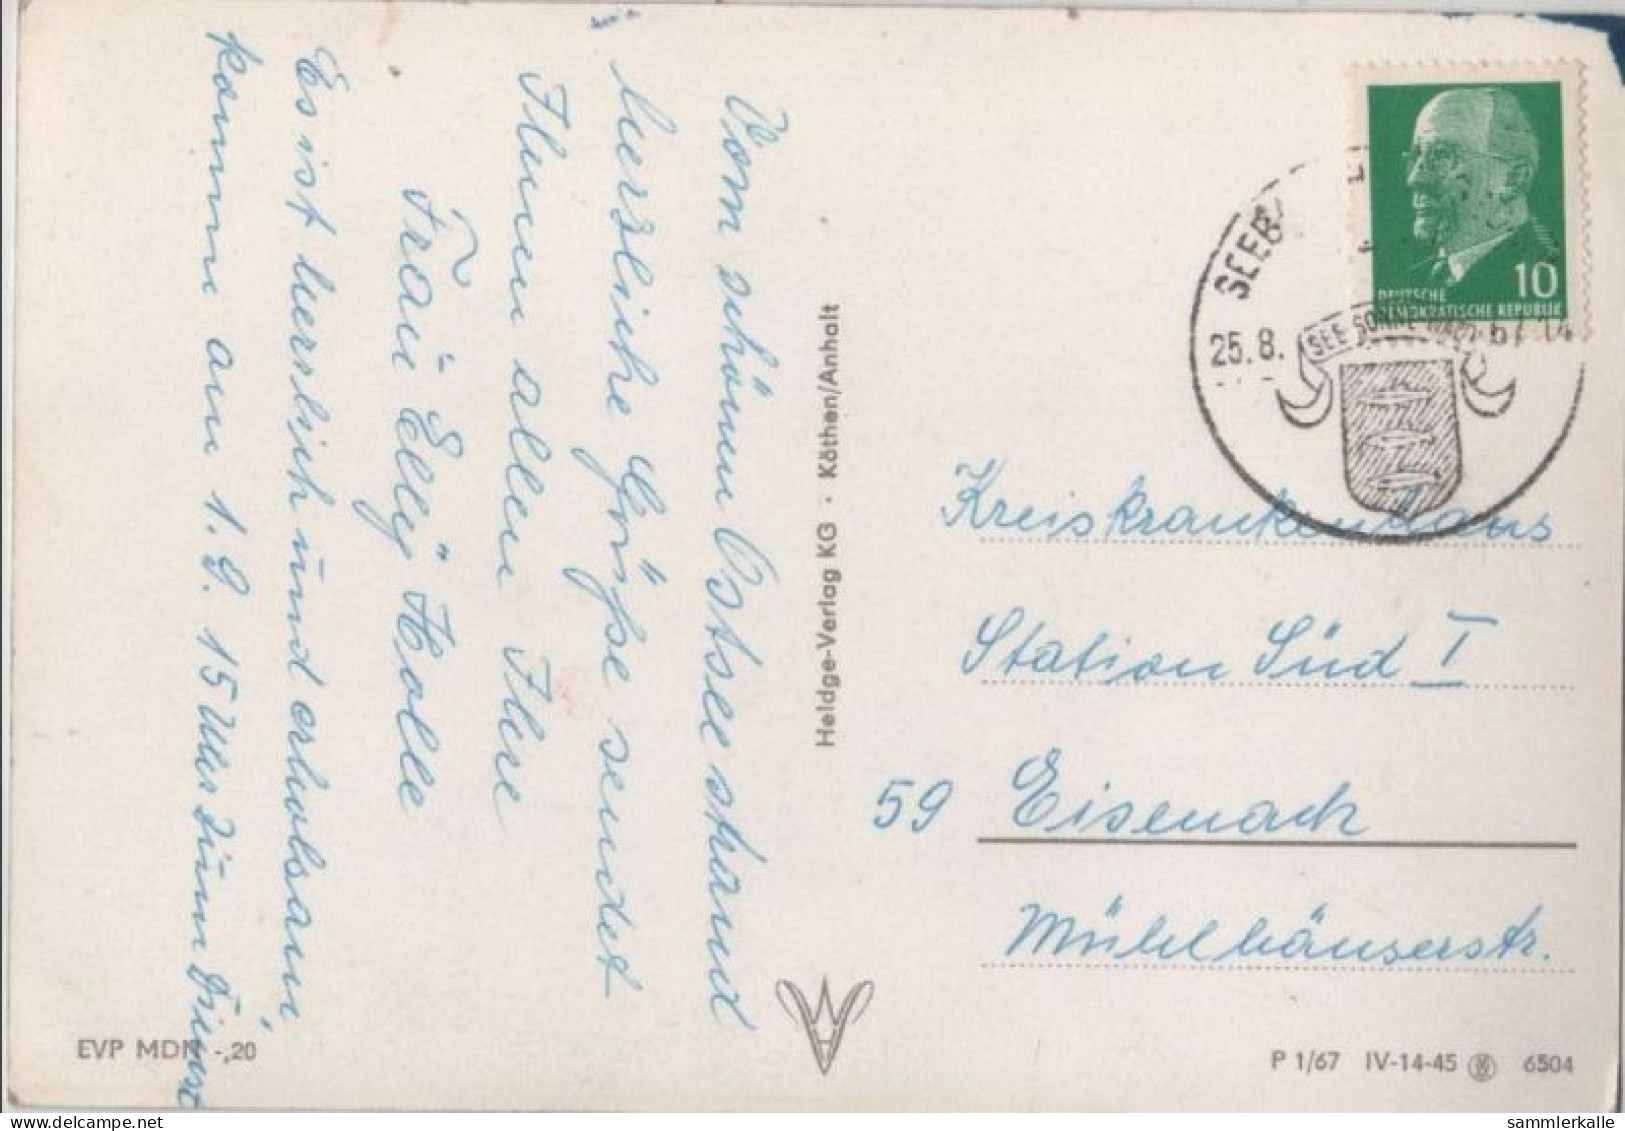 Vom schönen Ostseestrand
herzliche Grüße sendet
Ihnen allen Ihre
Frau Elly Holle
Es ist herrlich und erholsam,
komme am 1. 9. 15 Uhr zum Dienst
Heldge-Verlag KG · Köthen/Anhalt
EVP MDN -,20
10
DEUTSCHE
DEMOKRATISCHE REPUBLIK
SEEB
25.8.
SEE·SONNE·WALD
67
14
Kreiskrankenhaus
Station Süd I
59 Eisenach
Mühlhäuserstr.
P 1/67 IV-14-45 6504
sammlerkalle